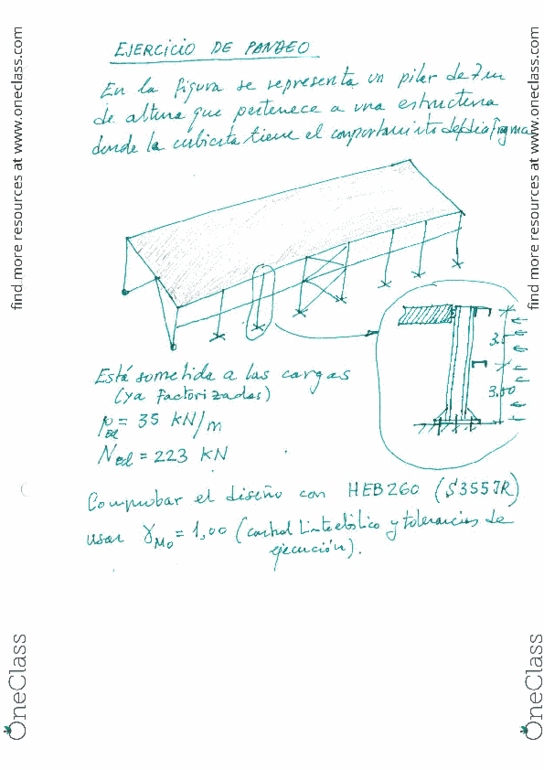 EJERCICIO DE PANDEO
En la figura se representa un pilar de 7 m
de altura que pertenece a una estructura
donde la cubierta tiene el comportamiento de diafragma
3.50
Está sometida a las cargas
(ya factorizadas)
pEd = 35 kN/m
NEd = 223 kN
Comprobar el diseño con HEB260 (S355JR)
usar γM0 = 1,00 (control límite elástico y tolerancias de
ejecución).
find more resources at www.oneclass.com
OneClass
find more resources at www.oneclass.com
OneClass